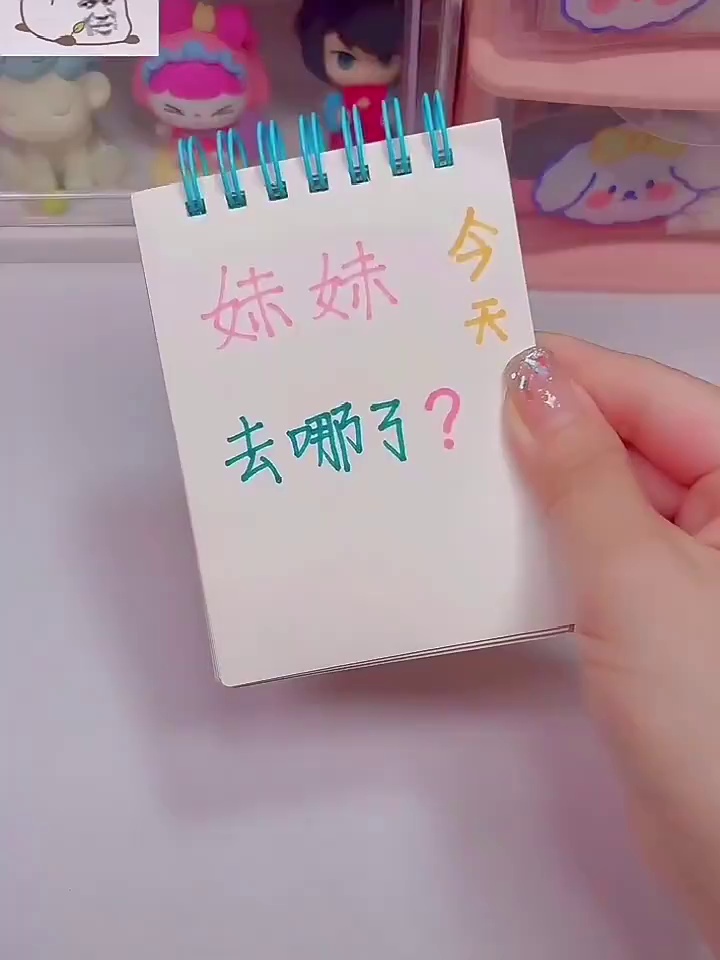 妹妹
今天
去哪了？